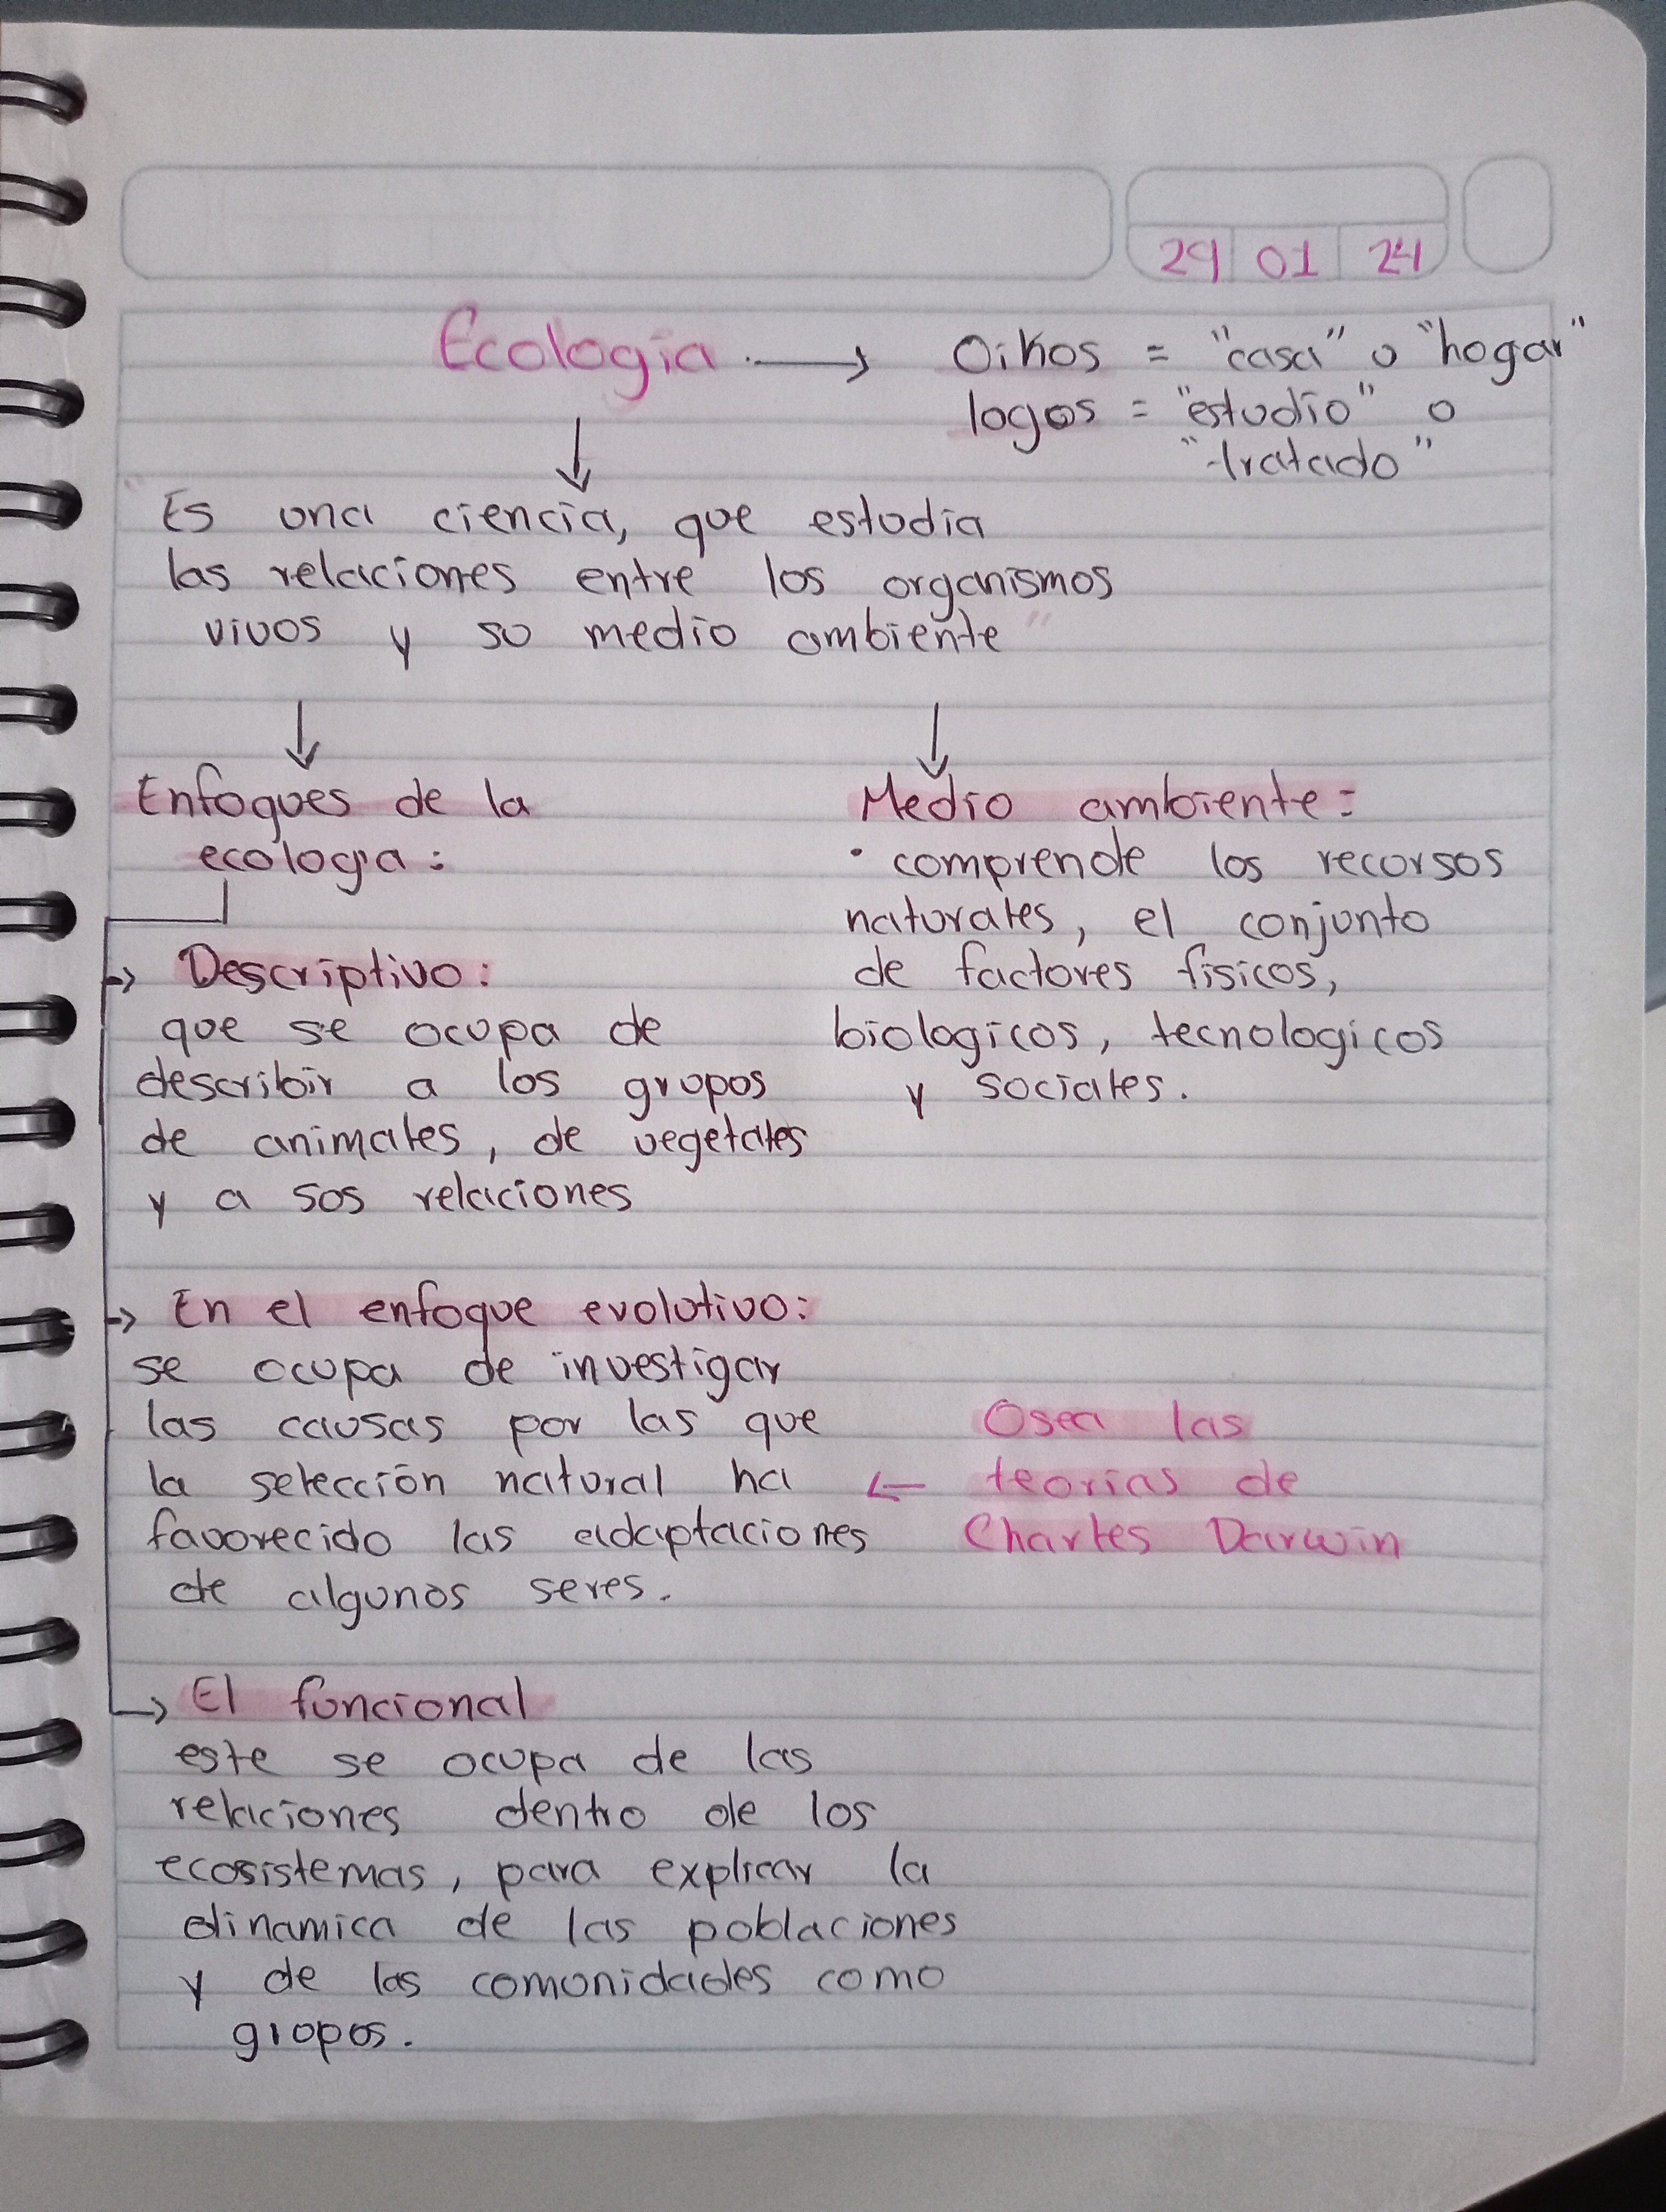 29 01 24
Ecologia → Oikos = "casa" o "hogar"
logos = "estudio" o
"tratado"
"Es una ciencia, que estudia
las relaciones entre los organismos
vivos y su medio ambiente"
Enfoques de la
ecologia:
→ Descriptivo:
que se ocupa de
describir a los grupos
de animales, de vegetales
y a sus relaciones
→ En el enfoque evolutivo:
se ocupa de investigar
las causas por las que
la selección natural ha
favorecido las adaptaciones
de algunos seres.
→ El funcional
este se ocupa de las
relaciones dentro de los
ecosistemas, para explicar la
dinamica de las poblaciones
y de las comunidades como
grupos.
Medio ambiente:
· comprende los recursos
naturales, el conjunto
de factores fisicos,
biologicos, tecnologicos
y sociales.
Osea las
← teorias de
Charles Darwin